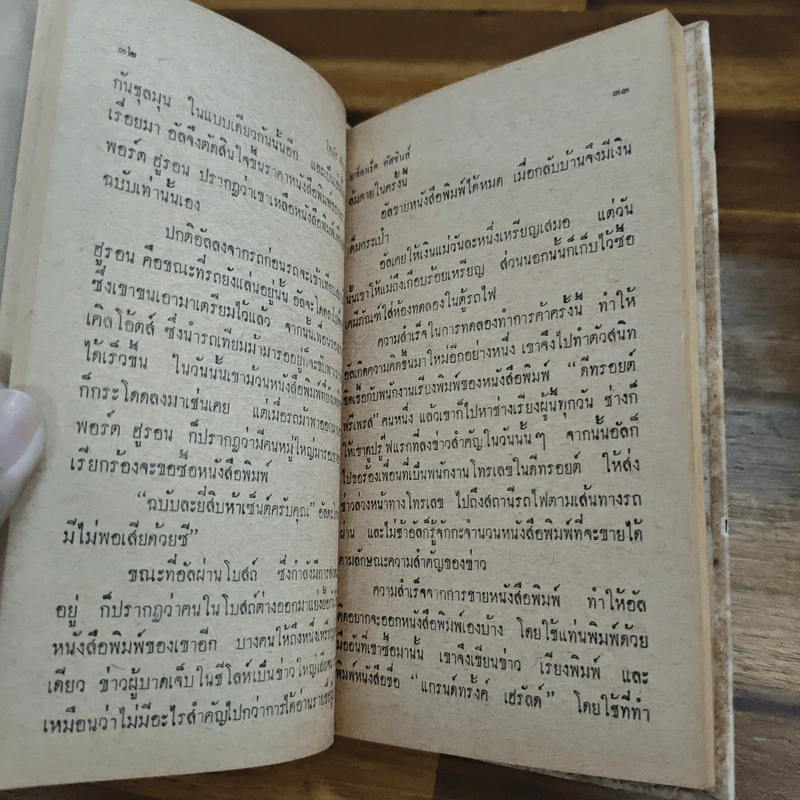 ๓๒
กันชุลมุน ในแบบเดียวกันนั้นอีก และเป็น
เรื่อยมา อัลจึงตัดสินใจขึ้นราคาหนังสือพิมพ์
พอร์ต ฮูรอน ปรากฏว่าเขาเหลือหนังสือพิมพ์
ฉบับเท่านั้นเอง
ปกติอัลลงจากรถก่อนรถจะเข้าเทียบ
ฮูรอน คือขณะที่รถยังแล่นอยู่นั้น อัลจะโดดลง
ซึ่งเขาขนเอามาเตรียมไว้แล้ว จากนั้นเพื่อนของ
เคิลโอ๊ตส์ ซึ่งนำรถเทียมม้ามารออยู่ก็จะขับพา
ได้เร็วขึ้น ในวันนั้นเขาม้วนหนังสือพิมพ์ที่ยัง
ก็กระโดดลงมาเช่นเคย แต่เมื่อรถม้าพาออกมา
พอร์ต ฮูรอน ก็ปรากฏว่ามีคนหมู่ใหญ่มารอ
เรียกร้องจะขอซื้อหนังสือพิมพ์
“ฉบับละยี่สิบห้าเซ็นต์ครับคุณ” อัล
มีไม่พอเสียด้วยซี”
ขณะที่อัลผ่านโบสถ์ ซึ่งกำลังมีการ
อยู่ ก็ปรากฏว่าคนในโบสถ์ต่างออกมาแย่ง
หนังสือพิมพ์ของเขาอีก บางคนให้ถึงหนึ่งเหรียญ
เดียว ข่าวผู้บาดเจ็บในชีโลห์เป็นข่าวใหญ่
เหมือนว่าไม่มีอะไรสำคัญไปกว่าการได้อ่าน
๓๓
มาร์กาเร็ต คัสซินส์
ล้มตายในครั้งนี้
อัลขายหนังสือพิมพ์ได้หมด เมื่อกลับบ้านจึงมีเงิน
เต็มกระเป๋า
อัลเคยให้เงินแม่วันละหนึ่งเหรียญเสมอ แต่วัน
นั้นเขาให้แม่ถึงเกือบร้อยเหรียญ ส่วนนอกนั้นก็เก็บไว้ซื้อ
เคมีภัณฑ์ใส่ห้องทดลองในตู้รถไฟ
ความสำเร็จในการทดลองทำการค้าครั้งนี้ ทำให้
อัลเกิดความคิดขึ้นมาใหม่อีกอย่างหนึ่ง เขาจึงไปทำตัวสนิท
ชิดเชื้อกับพนักงานเรียงพิมพ์ของหนังสือพิมพ์ “ดีทรอยต์
ฟรีเพรส” คนหนึ่ง แล้วเขาก็ไปหาช่างเรียงผู้นี้ทุกวัน ช่างก็
ให้เขาดูปรู๊ฟแรกที่ลงข่าวสำคัญในวันนั้น ๆ จากนั้นอัลก็
ไปขอร้องเพื่อนที่เป็นพนักงานโทรเลขในดีทรอยต์ ให้ส่ง
ข่าวล่วงหน้าทางโทรเลข ไปถึงสถานีรถไฟตามเส้นทางรถ
ผ่าน และไม่ช้าอัลก็รู้จักกะจำนวนหนังสือพิมพ์ที่จะขายได้
ตามลักษณะความสำคัญของข่าว
ความสำเร็จจากการขายหนังสือพิมพ์ ทำให้อัล
คิดอยากจะออกหนังสือพิมพ์เองบ้าง โดยใช้แท่นพิมพ์ด้วย
มืออันที่เขาซื้อมานั้น เขาจึงเขียนข่าว เรียงพิมพ์ และ
พิมพ์หนังสือชื่อ “แกรนด์ทรั้งค์ เฮรัลด์” โดยใช้ที่ทำ